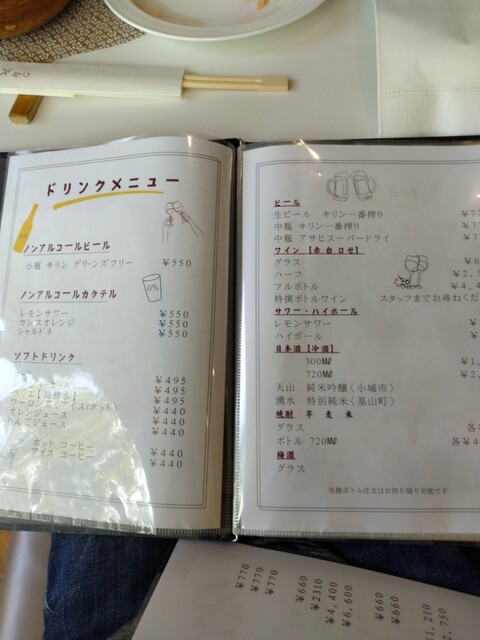 ドリンクメニュー
ノンアルコールビール
小瓶 キリン グリーンズフリー ￥550
0%
ノンアルコールカクテル
レモンサワー ￥550
カシスオレンジ ￥550
シャルドネ ￥550
ソフトドリンク
￥495
￥495
ウーロン アイス(ホット) ￥440
オレンジジュース ￥440
りんごジュース ￥440
ホット コーヒー ￥440
アイス コーヒー ￥440
ビール
生ビール キリン一番搾り ￥77
中瓶 キリン一番搾り ￥7
中瓶 アサヒスーパードライ ￥7
ワイン【赤 白 ロゼ】
グラス ￥6
ハーフ ￥2,
フルボトル ￥4,
特撰ボトルワイン スタッフまでお尋ねくだ
サワー・ハイボール
レモンサワー ￥
ハイボール ￥
日本酒【冷酒】
300㎖ ￥1,
720㎖ ￥2,
天山 純米吟醸〈小城市〉
湧水 特別純米〈基山町〉
焼酎 芋 麦 米
グラス 各￥
ボトル 720㎖ 各￥4
梅酒
グラス
各種ボトル注文はお持ち帰り可能です
￥770
￥770
￥770
￥660
￥2310
￥4,400
￥6,600
￥660
￥660
1,210
2,750